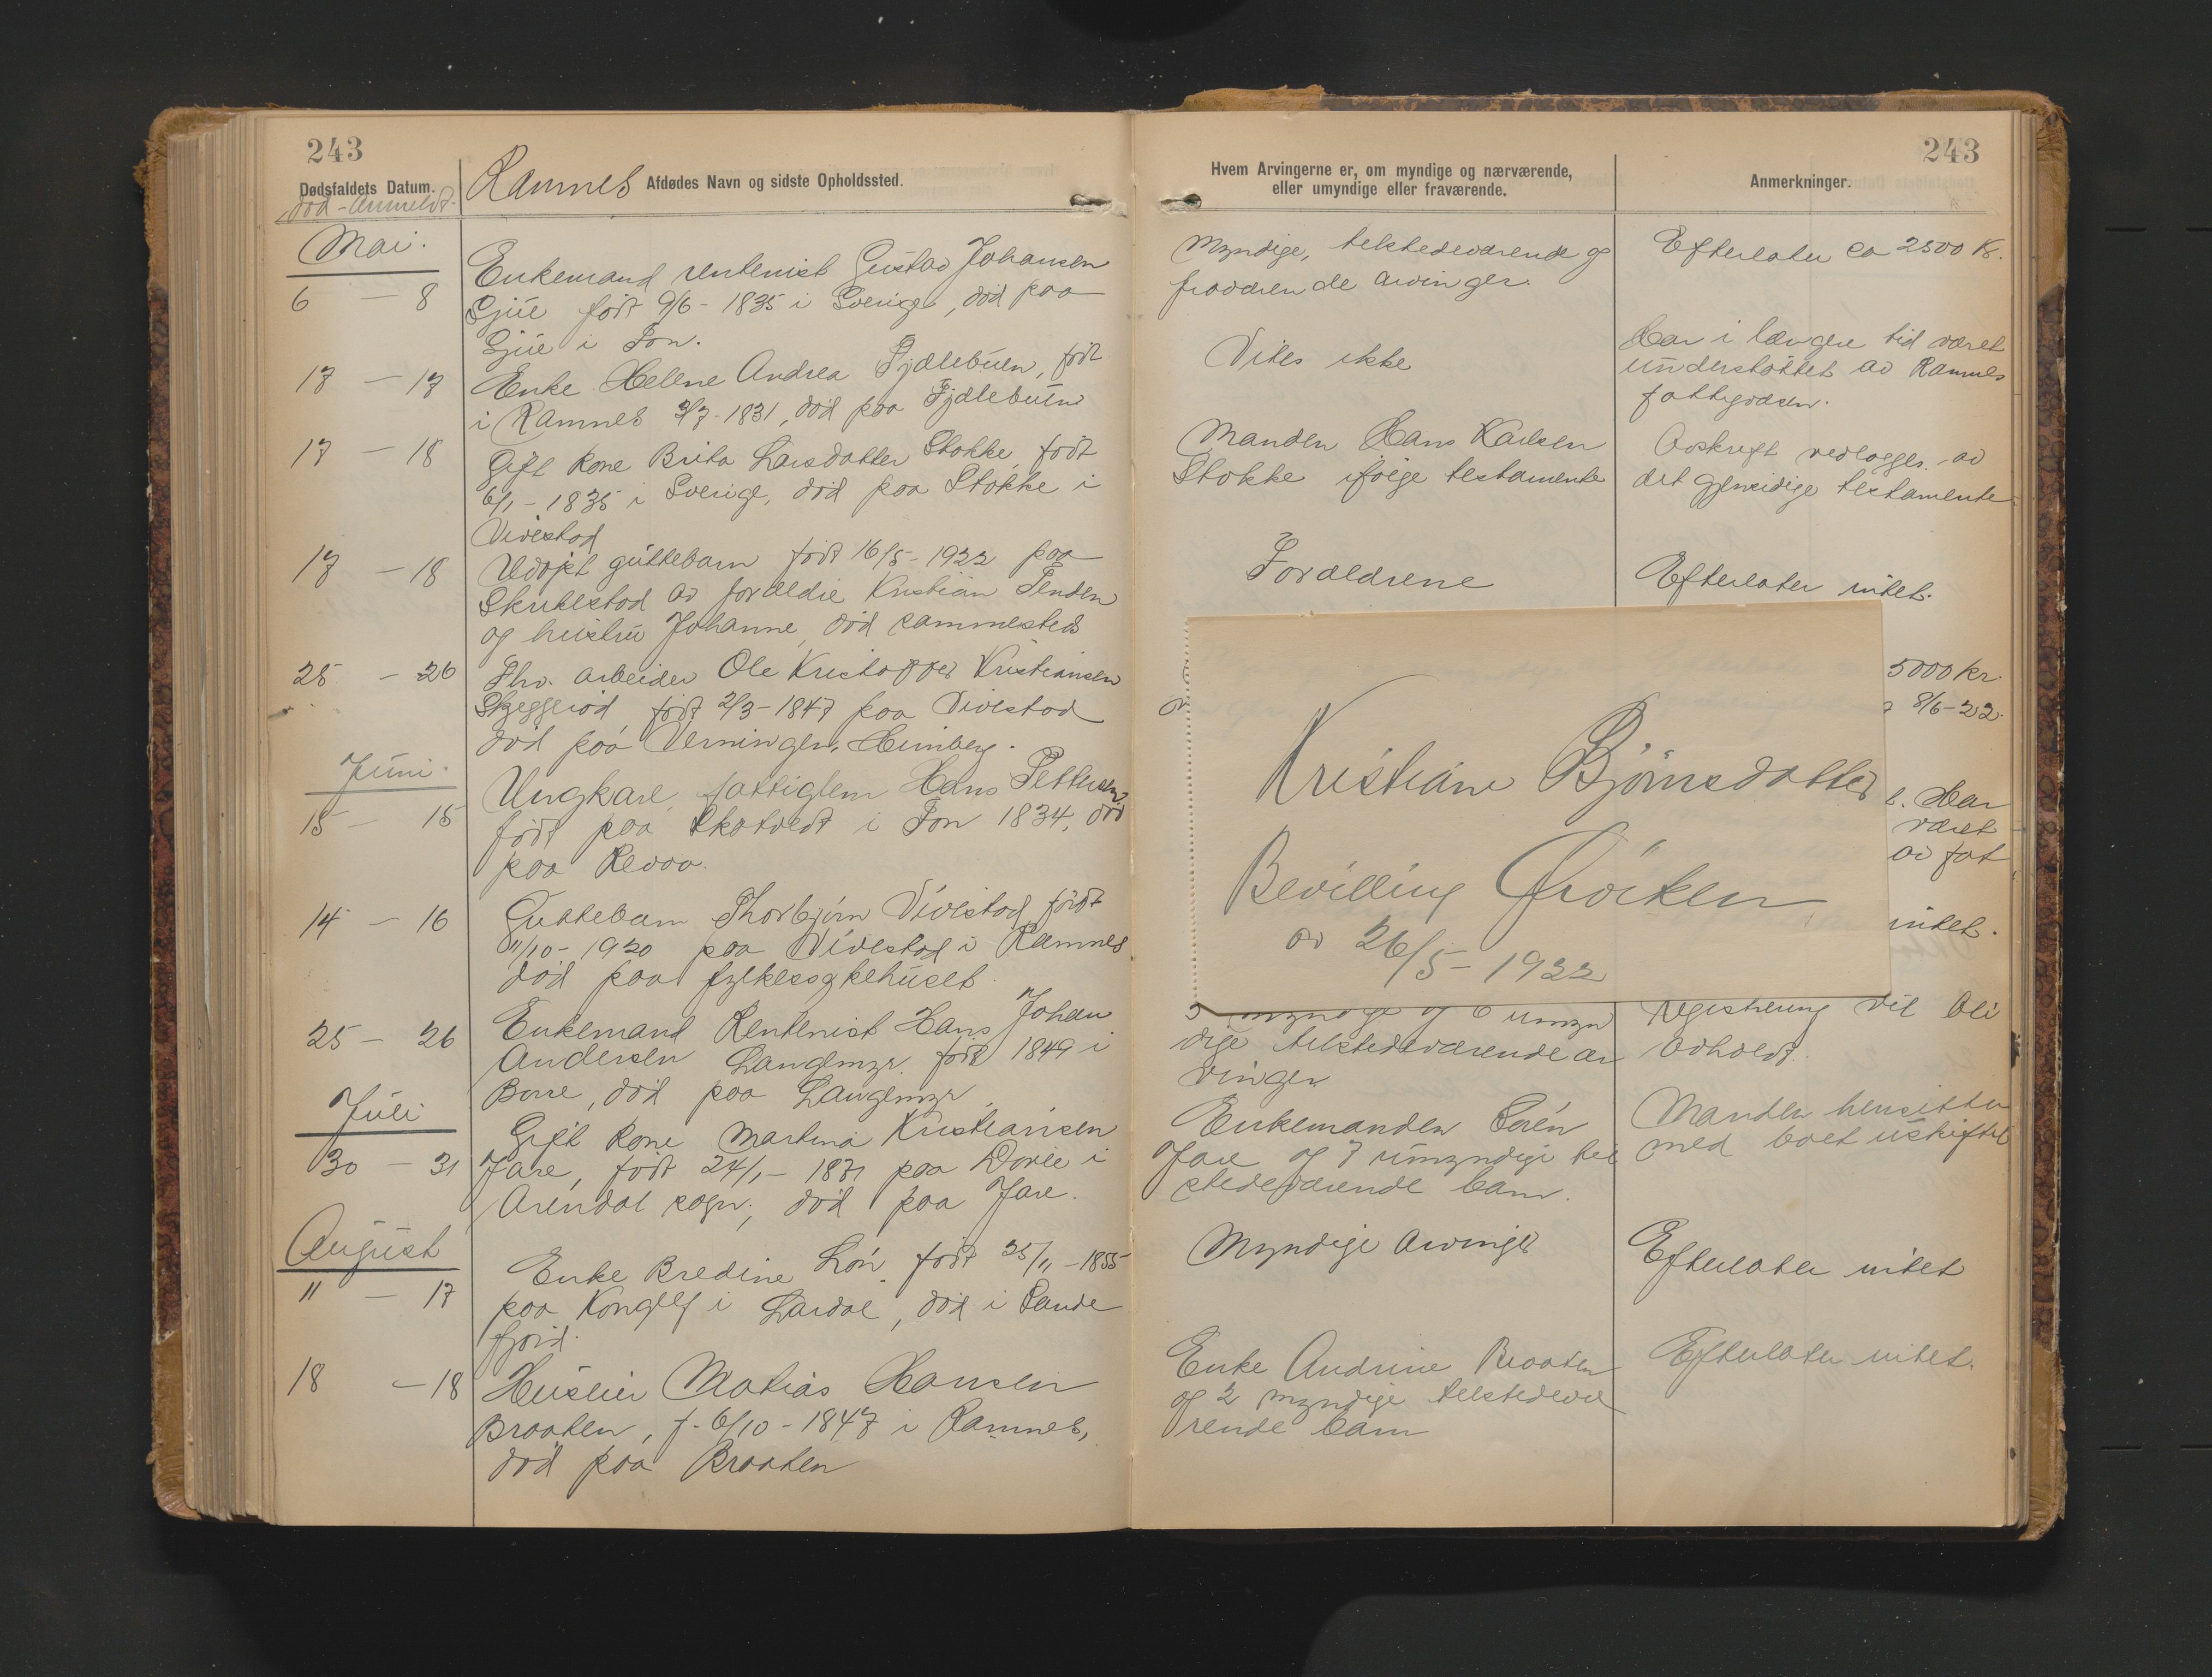 243
Dødsfaldets Datum.
død - Anmeldt.
Ramnes Afdødes Navn og sidste Opholdssted.
Mai.
6 — 8
Enkemand rentenist Gustav Johansen
Gjüe født 9/6 - 1835 i Sverige, død paa
Gjüe i Fon.
17 — 17
Enke Helene Andrea Fjælebuen, født
i Ramnes 3/7 - 1831, død paa Fjælebuen
17 — 18
Gift kone Brita Larsdatter Stokke, født
6/1 - 1835 i Sverige, død paa Stokke i
Vivestad
17 — 18
Udøpt guttebarn født 16/5 - 1922 paa
av foreldre Kristian
og hustru Johanne, død sammesteds
25 — 26
Fhv. arbeider Ole Kristoffer Kristiansen
Skjeggerød, født 2/3 - 1847 paa Vivestad
død paa Verningen, Heimberg.
Juni.
15 — 15
Ungkarl, fattiglem Hans Pettersen
født paa i Fon 1834, død
paa Revaa.
14 — 16
Guttebarn Thorbjørn Vivestad, født
11/10 - 1920 paa Vivestad i Ramnes
død paa fylkessykehuset.
25 — 26
Enkemand Rentenist Hans Johan
Andersen Langemyr. født 1849 i
Borre, død paa Langemyr.
Juli
30 — 31
Gift kone Martina Kristiansen
Jare, født 24/1 - 1871 paa i
Arendal sogn, død paa Jare.
August
11 — 17
Enke Bredine Løn. født 25/11 - 1855
paa i Lardal, død i Sande
fjord.
18 — 18
Husleier Matias Hansen
Braaten, f. 6/10 - 1847 i Ramnes,
død paa Braaten
243
Hvem Arvingerne er, om myndige og nærværende,
eller umyndige eller fraværende.
Anmerkninger.
Myndige, tilstedeværende og
fraværende arvinger.
Efterlater ca 2500 Kr.
Vites ikke
Har i længere tid været
understøttet av Ramnes
fattigvæsen.
Manden Hans Karlsen
Stokke ifølge testamente
Avskrift vedlægges av
det gjensidige testamente
Forældrene
Efterlater intet.
5000 kr.
8/6 - 22.
Kristiane Bjørnsdatter
Bevilling Frøiken
av 26/5 - 1922
Har
været
av fat
intet.
myndige og 6 umyn
dige tilstedeværende ar
vinger
registrering vil bli
avholdt.
Enkemanden Sørén
Jare og 7 umyndige til
stedeværende barn.
Manden hensitter
med boet uskiftet
Myndige arvinger
Efterlater intet
Enke Andrine Braaten
og 2 myndige tilstedevæ
rende barn
Efterlater intet.